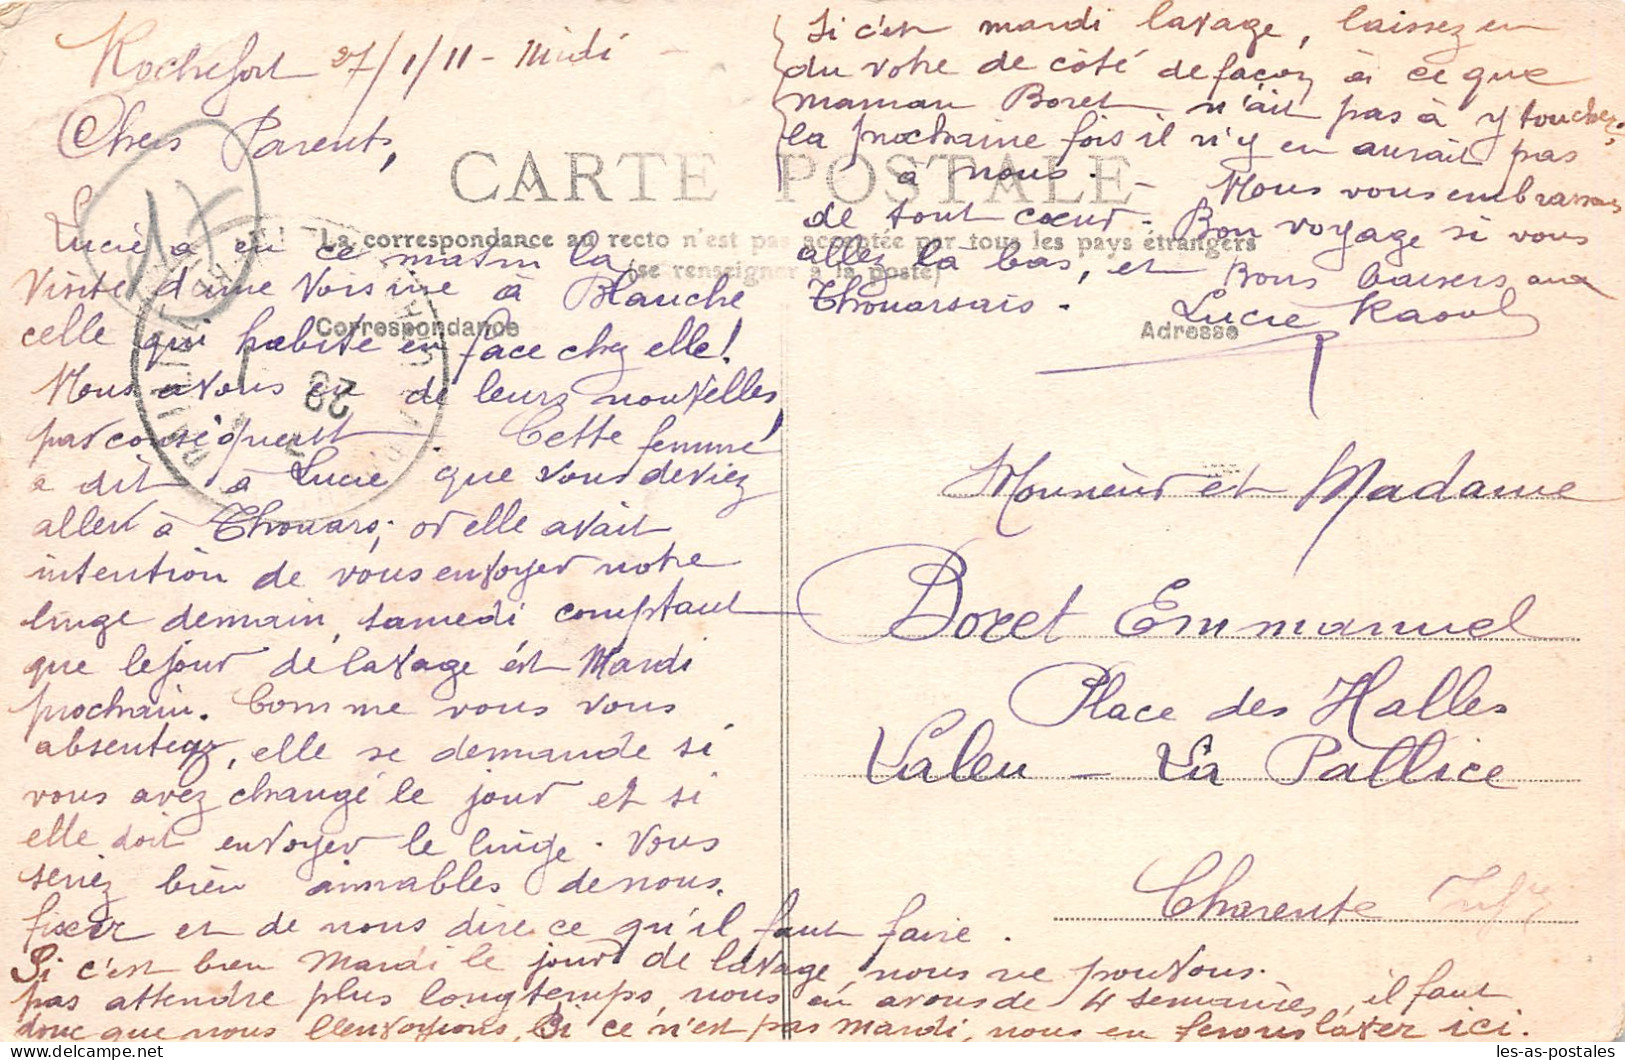 Rochefort 27/1/11 - Midi
Chers Parents,
CARTE POSTALE
La correspondance au recto n'est pas acceptée par tous les pays étrangers
(se renseigner à la poste)
Correspondance
Adresse
Lucie a eu ce matin la
visite d'une voisine à Blanche
celle qui habite en face chez elle!
Nous avons eu de leurs nouvelles
par conséquent. Cette femme
a dit à Lucie que vous deviez
aller à Thouars; or elle avait
intention de vous envoyer notre
linge demain, samedi comptant
que le jour de lavage est Mardi
prochain. Comme vous vous
absentez, elle se demande si
vous avez changé le jour et si
elle doit envoyer le linge. Vous
seriez bien aimables de nous
fixer et de nous dire ce qu'il faut faire.
Si c'est bien Mardi le jour de lavage, nous ne pouvons
pas attendre plus longtemps, nous en avons de 4 semaines, il faut
donc que nous l'envoyions, Si ce n'est pas mardi, nous en ferons laver ici.
Si c'est mardi lavage, laissez en
du votre de côté de façon à ce que
maman Boret n'ait pas à y toucher,
la prochaine fois il n'y en aurait pas
à nous. - Nous vous embrassons
de tout cœur. Bon voyage si vous
allez là bas, et Bons baisers aux
Thouarsais. Lucie Raoul
Monsieur et Madame
Boret Emmanuel
Place des Halles
Laleu - La Pallice
Charente Infre
les-as-postales